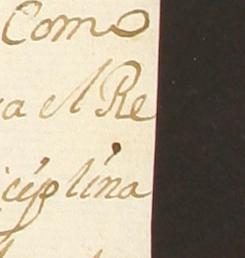 Como
a el Re
iciplina